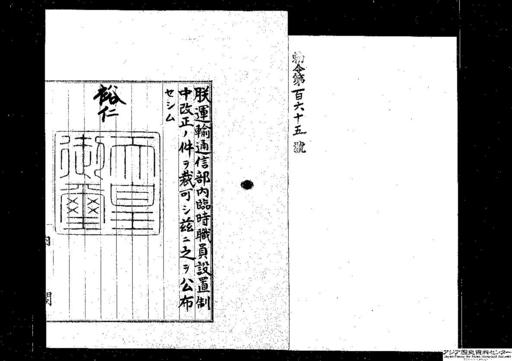 勅令第百六十五號
朕運輸通信部內臨時職員設置制
中改正ノ件ヲ裁可シ茲ニ之ヲ公布
セシム
裕仁
天皇
御璽
內閣
アジア歴史資料センター